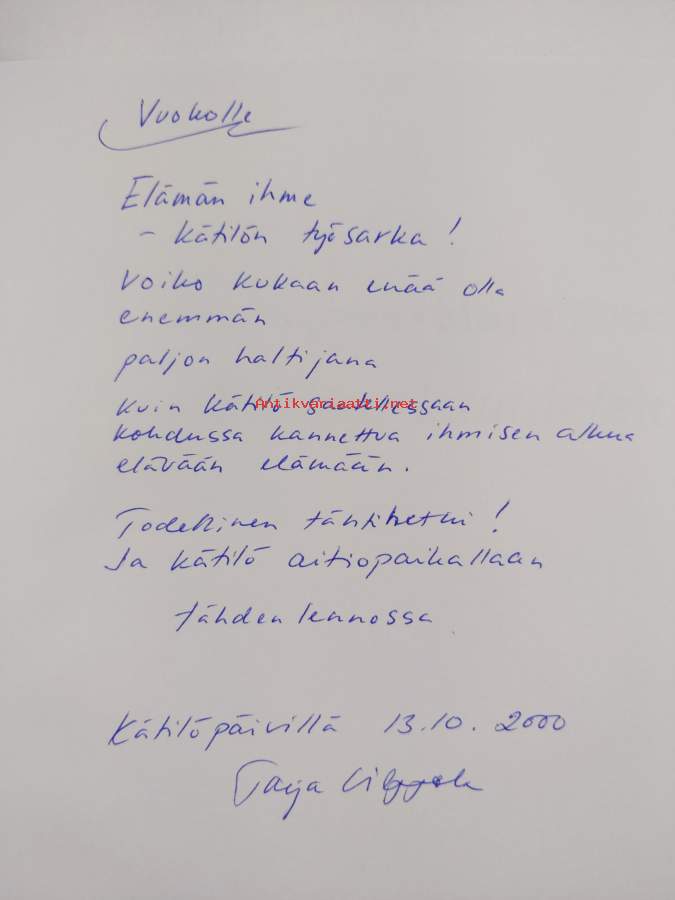 Vuokolle
Elämän ihme
- kätilön työsarka!
Voiko kukaan enää olla
enemmän
paljon haltijana
kuin kätilö saatellessaan
Antikvariaatti.net
kohdussa kannettua ihmisen alkua
elävään elämään.
Todellinen tähtihetki!
Ja kätilö aitiopaikallaan
tähden lennossa
Kätilöpäivillä 13.10.2000
Tarja